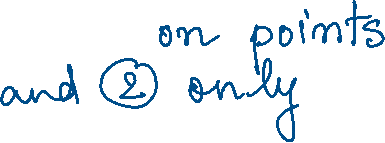 on points
and ② only